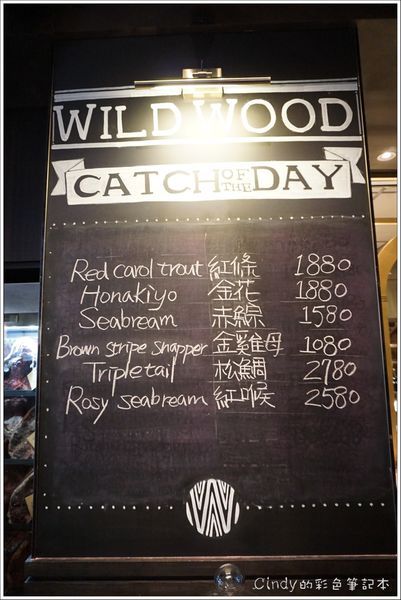 WILD WOOD
CATCH OF THE DAY
Red carol trout 紅條 1880
Honakiyo 金花 1880
Seabream 赤綜 1580
Brown stripe snapper 金雞母 1080
Tripletail 松鯛 2780
Rosy seabream 紅喉 2580
W
Cindy的彩色筆記本